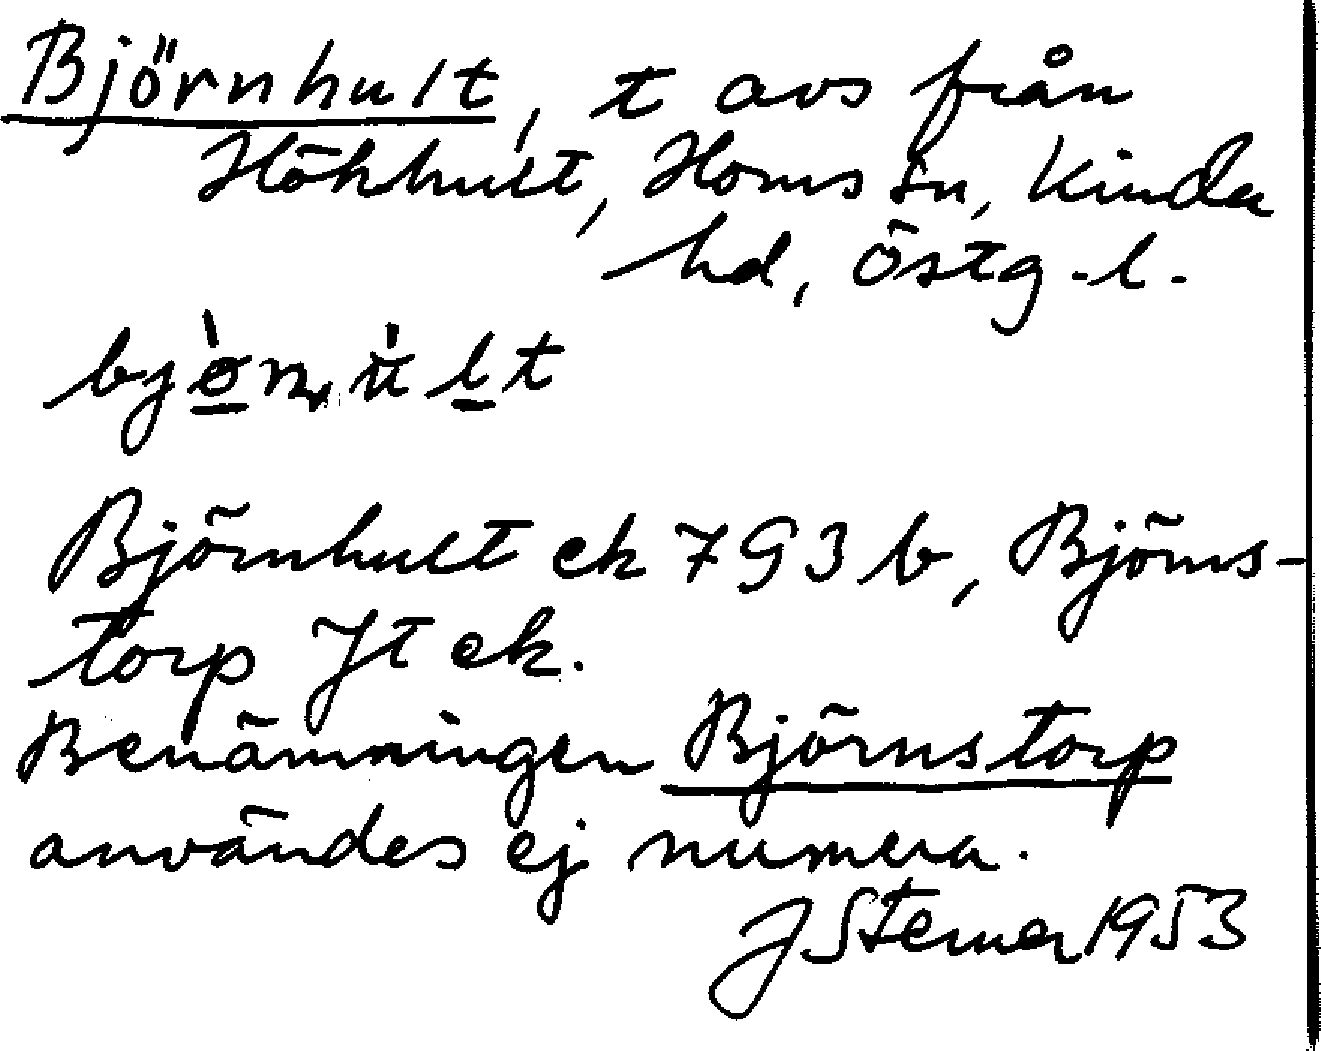 Björnhult, t avs från
Hökhult, Horns sn, Kinda
hd, Östg.l.
Björnhult ek 793 b, Björns-
torp Jt ek.
Benämningen Björnstorp
användes ej numera.
J Sterner 1953